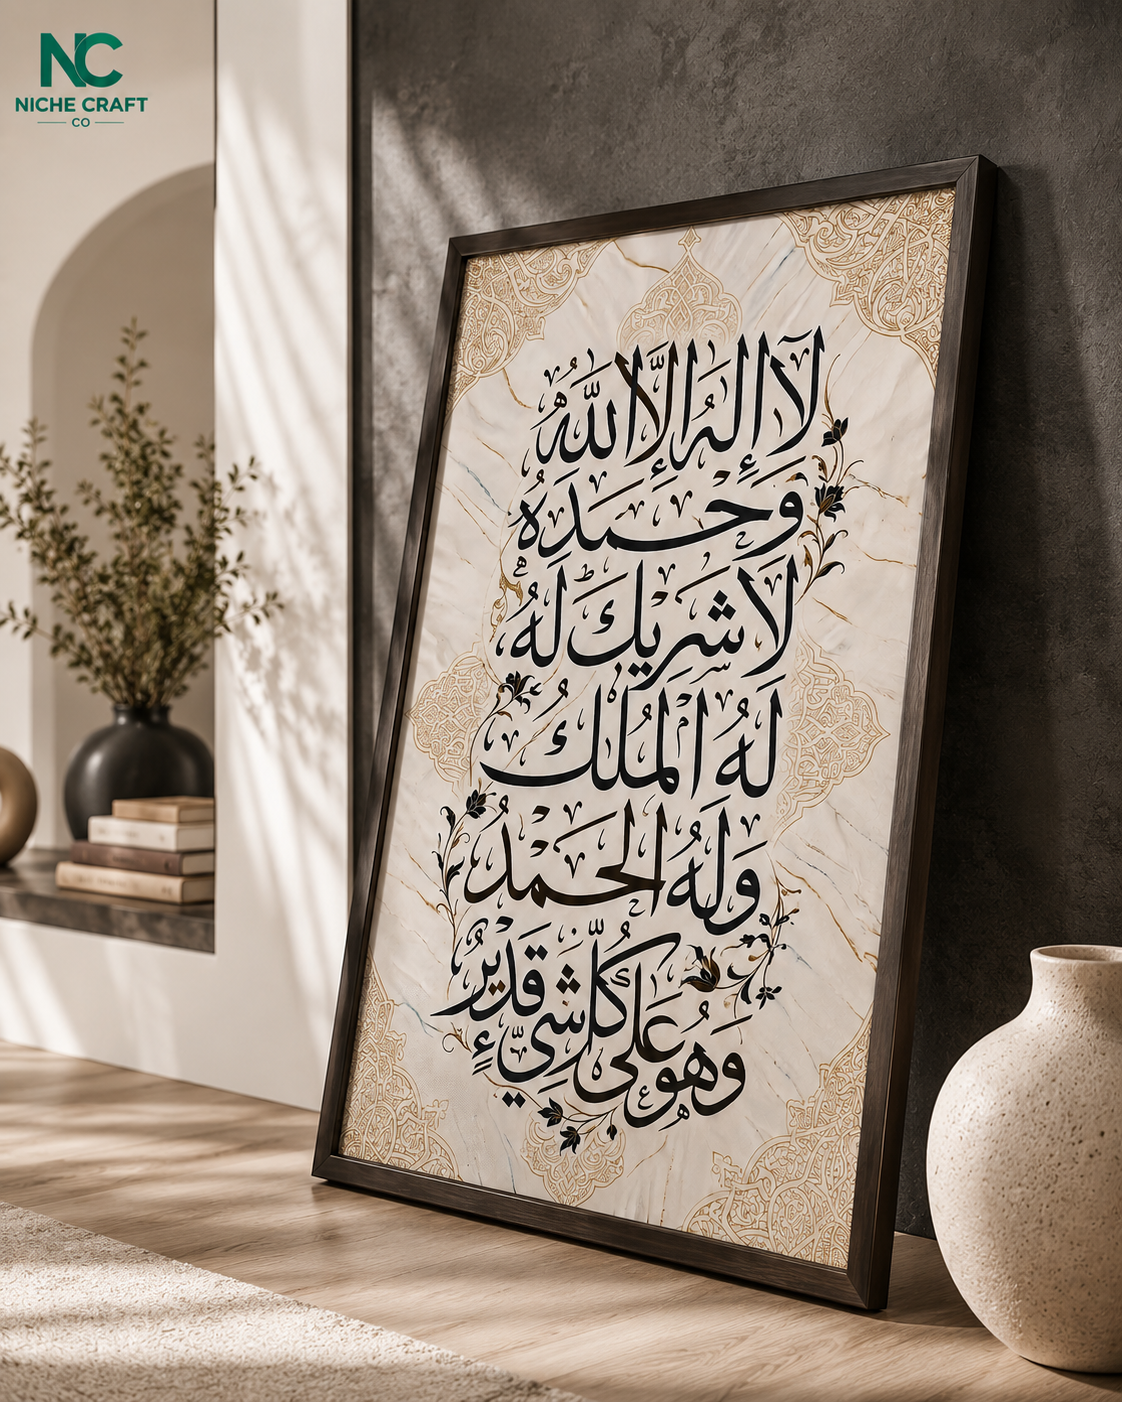 NC
NICHE CRAFT
CO
لَا إِلٰهَ إِلَّا اللّٰهُ
وَحْدَهُ
لَا شَرِيكَ لَهُ
لَهُ الْمُلْكُ
وَلَهُ الْحَمْدُ
وَهُوَ عَلَى كُلِّ شَيْءٍ قَدِيرٌ